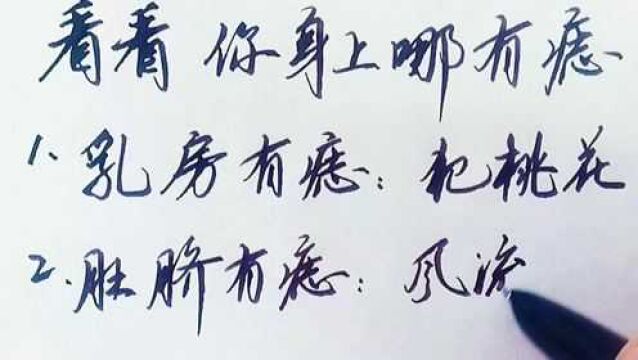 看看 你身上哪有痣
1. 乳房有痣：犯桃花
2. 肚脐有痣：风流